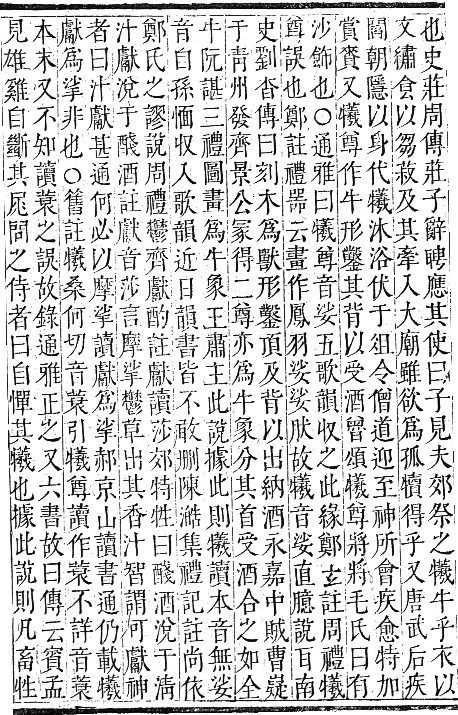 也史莊周傳莊子辭聘應其使曰子見夫郊祭之犧牛乎衣以
文繡食以芻菽及其牽入大廟雖欲爲孤犢得乎又唐武后疾
閻朝隱以身代犧沐浴伏于俎令僧道迎至神所會疾愈特加
賞賚又犧尊作牛形鑿其背以受酒曾頌犧尊將將毛氏曰有
沙飾也○通雅曰犧尊音娑五歌韻收之此緣鄭玄註周禮犧
尊誤也鄭註禮器云畫作鳳羽娑娑肰故犧音娑直臆說耳南
史劉杳傳曰刻木爲獸形鑿頂及背以出納酒永嘉中賊曹嶷
于靑州發齊景公冢得二尊亦爲牛象分其首受酒合之如全
牛阮諶三禮圖畫爲牛象王肅主此說據此則犧讀本音無娑
音自孫愐収入歌韻近日韻書皆不敢删陳澔集禮記註尚依
鄭氏之謬說周禮鬱齊獻酌註獻讀莎郊特牲曰醆酒涗于淸
汁獻涗于醆酒註獻音莎言摩挲鬱草出其香汁智謂可獻神
者曰汁獻甚通何必以摩挲讀獻爲挲郝京山讀書通仍載犧
獻爲挲非也○舊註犧桑何切音蓑引犧尊讀作蓑不詳音蓑
本末又不知讀蓑之誤故錄通雅正之又六書故曰傳云賓孟
見雄雞自斷其尾問之侍者曰自憚其犧也據此說則凡畜牲